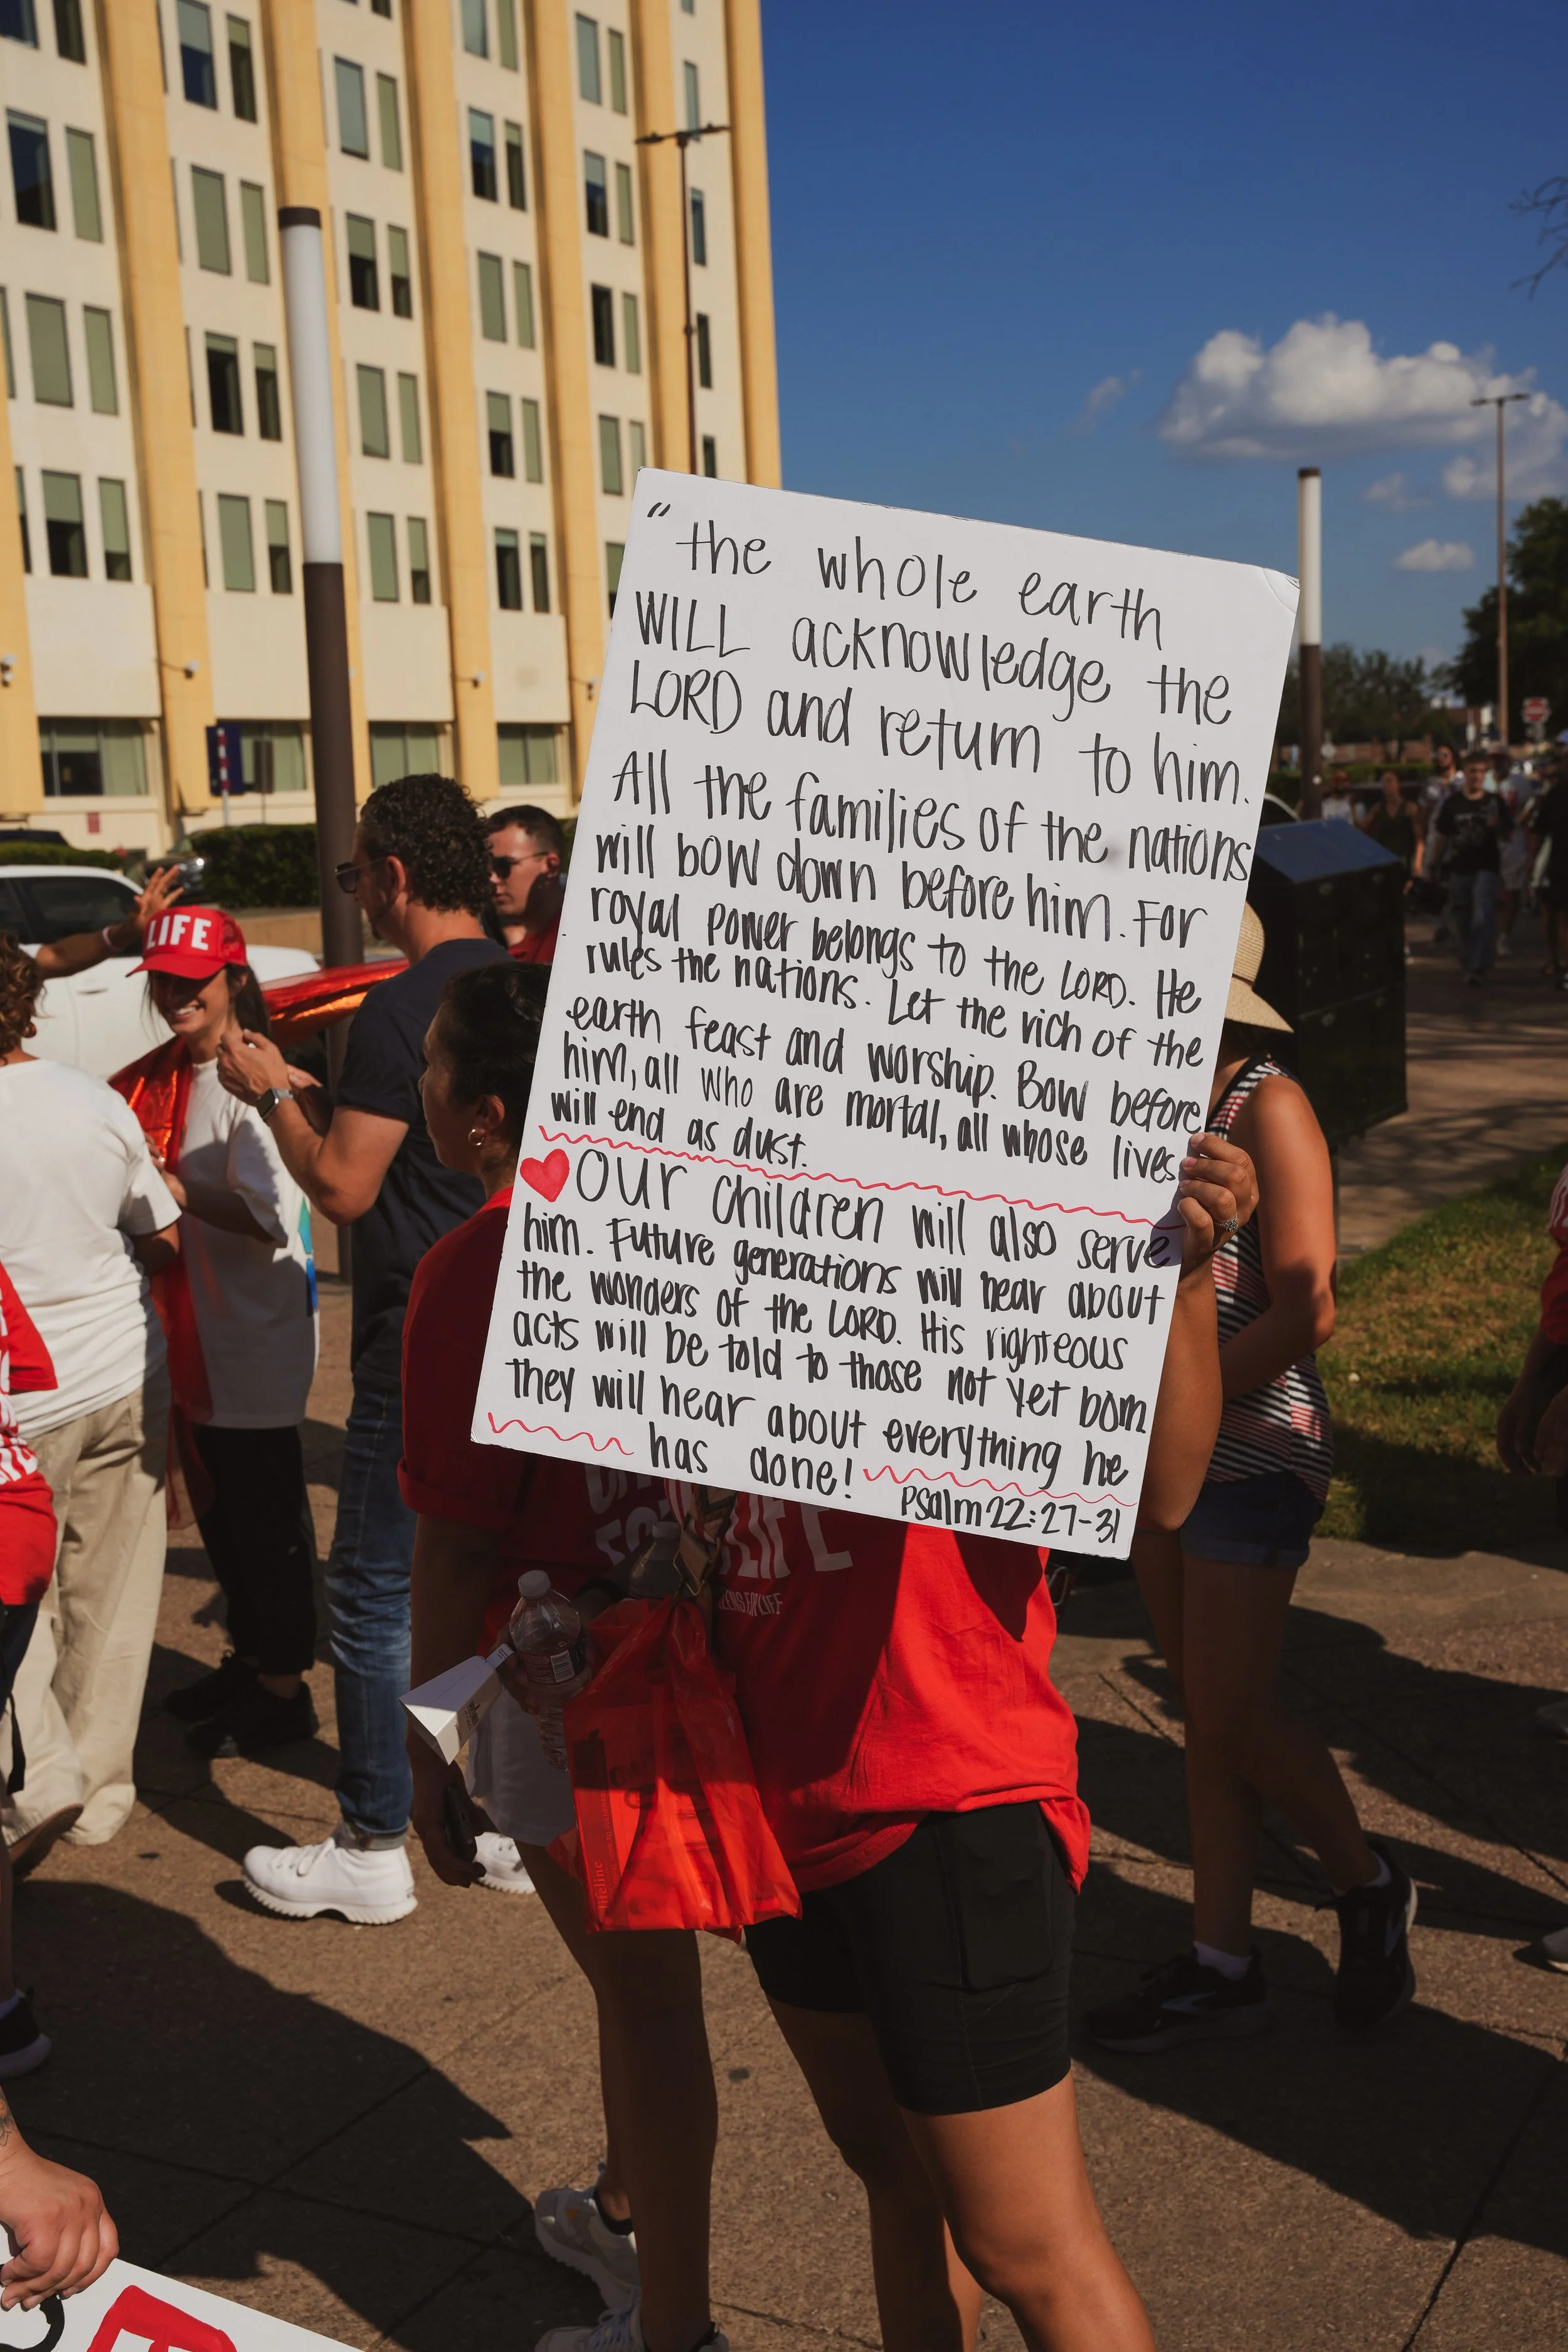 LIFE
" the whole earth
WILL acknowledge the
LORD and return to him.
All the families of the nations
will bow down before him. For
royal power belongs to the LORD. He
rules the nations. Let the rich of the
earth feast and worship. Bow before
him, all who are mortal, all whose lives
will end as dust.
OUR children will also serve
him. Future generations will hear about
the wonders of the LORD. His righteous
acts will be told to those not yet born.
they will hear about everything he
has done!
Psalm 22:27-31
LIFE
FOR LIFE